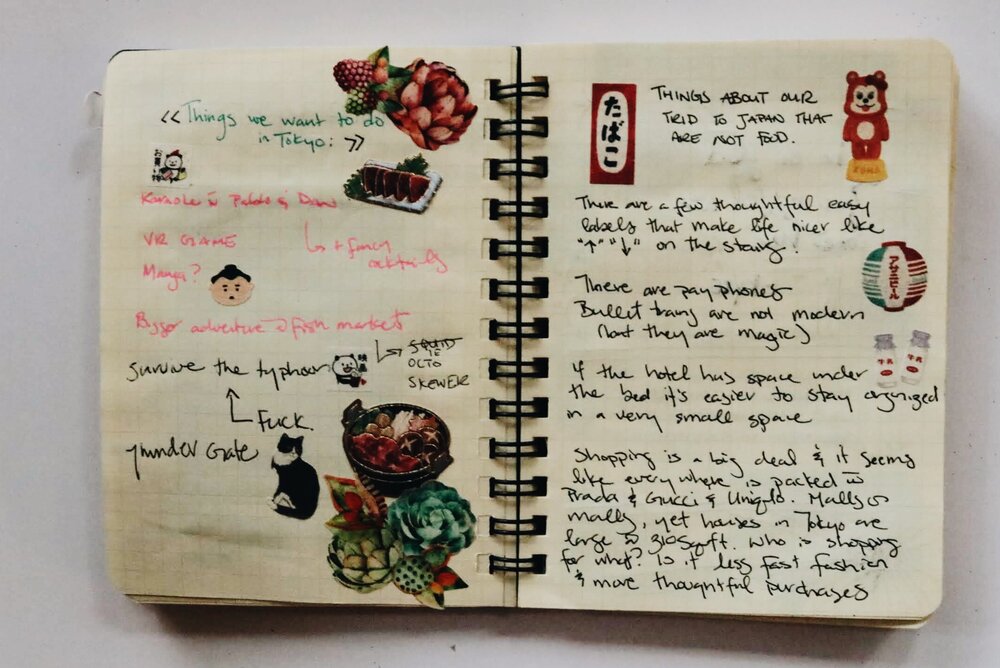 << Things we want to do
in Tokyo: >>
Karaoke w Pablo & Dani
↳ + fancy
cocktails
VR GAME
Manga?
Bigger adventure → fish market
↳ SQUID
IE
OCTO
SKEWER
Survive the typhoon
↑ Fuck.
Thunder Gate
たばこ
THINGS ABOUT OUR
TRIP TO JAPAN THAT
ARE NOT FOOD.
There are a few thoughtful easy
labels that make life nicer like
"↑" "↓" on the stairs!
アサヒビール
There are pay phones
Bullet trains are not modern
(but they are magic)
牛乳
牛乳
If the hotel has space under
the bed it's easier to stay organized
in a very small space
Shopping is a big deal & it seems
like everywhere is packed w
Prada & Gucci & Uniqlo. Malls
malls, yet houses in Tokyo are
large 310sqft. Who is shopping
for what? Is it less fast fashion
& more thoughtful purchases